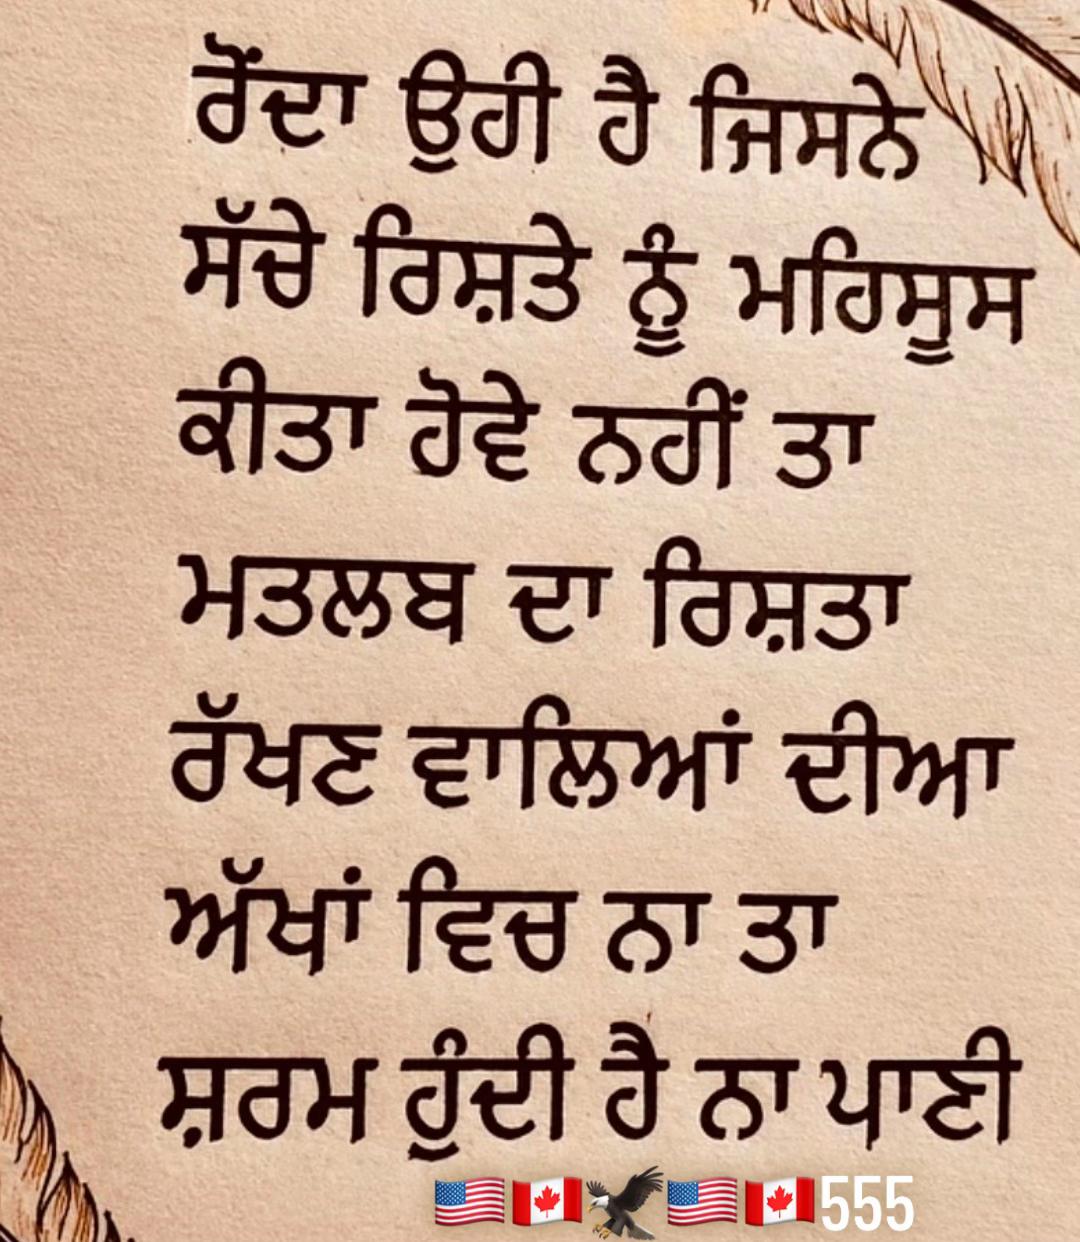 ਰੋਂਦਾ ਉਹੀ ਹੈ ਜਿਸਨੇ
ਸੱਚੇ ਰਿਸ਼ਤੇ ਨੂੰ ਮਹਿਸੂਸ
ਕੀਤਾ ਹੋਵੇ ਨਹੀਂ ਤਾ
ਮਤਲਬ ਦਾ ਰਿਸ਼ਤਾ
ਰੱਖਣ ਵਾਲਿਆਂ ਦੀਆ
ਅੱਖਾਂ ਵਿਚ ਨਾ ਤਾ
ਸ਼ਰਮ ਹੁੰਦੀ ਹੈ ਨਾ ਪਾਣੀ
🇺🇸🇨🇦🦅🇺🇸🇨🇦555